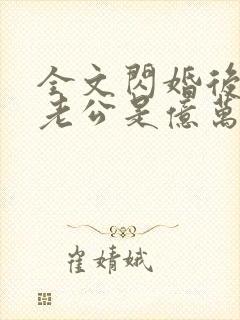 全文閃婚後
老公是億萬
崔婧娥